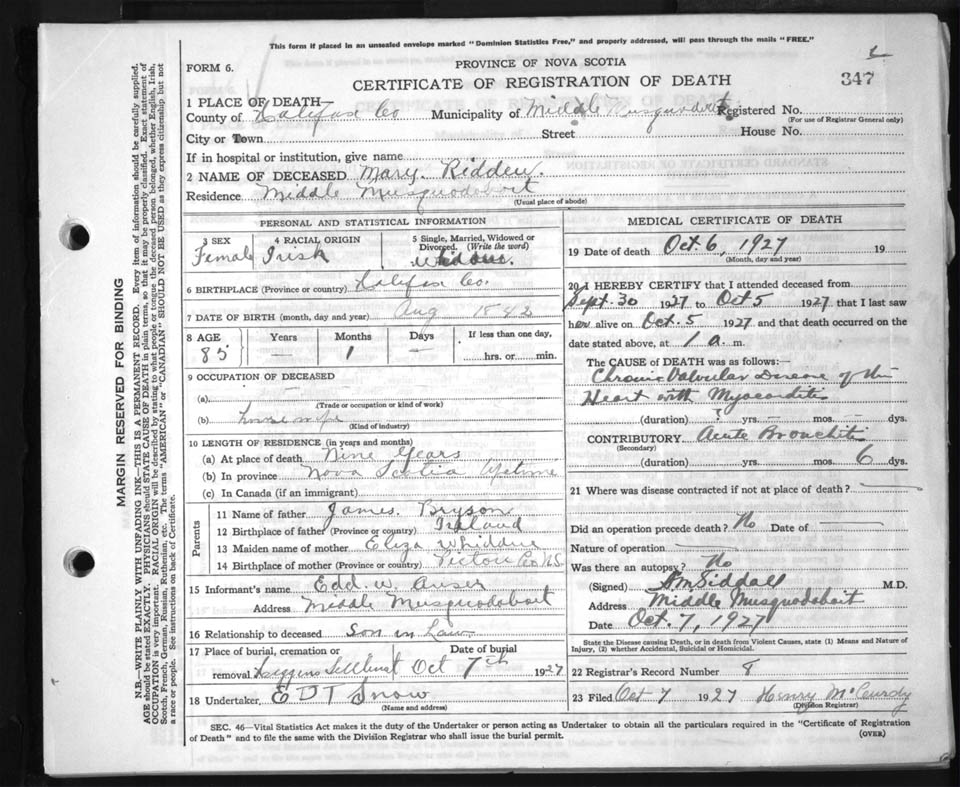 This form if placed in an unsealed envelope marked "Dominion Statistics Free," and properly addressed, will pass through the mails "FREE."
FORM 6.
PROVINCE OF NOVA SCOTIA
CERTIFICATE OF REGISTRATION OF DEATH
347
1 PLACE OF DEATH
County of Halifax Co Municipality of Middle Musquodoboit Registered No.
(For use of Registrar General only)
City or Town Street House No.
If in hospital or institution, give name
2 NAME OF DECEASED Mary. Ridden.
Residence Middle Musquodoboit
(Usual place of abode)
PERSONAL AND STATISTICAL INFORMATION
3 SEX Female
4 RACIAL ORIGIN Irish
5 Single, Married, Widowed or Divorced. (Write the word)
6 BIRTHPLACE (Province or country) Halifax Co.
7 DATE OF BIRTH (month, day and year) Aug 1842
8 AGE Years Months Days If less than one day,
85 — 1 — hrs. or min.
9 OCCUPATION OF DECEASED
(a)
(Trade or occupation or kind of work)
(b) housewife
(Kind of industry)
10 LENGTH OF RESIDENCE (in years and months)
(a) At place of death Nine Years
(b) In province Nova Scotia lifetime
(c) In Canada (if an immigrant)
Parents
11 Name of father James. Bryson
12 Birthplace of father (Province or country) Ireland
13 Maiden name of mother Eliza
14 Birthplace of mother (Province or country) Pictou Co NS
15 Informant's name Edd. W.
Address Middle Musquodoboit
16 Relationship to deceased Son in Law
17 Place of burial, cremation or removal Date of burial
Higgins Settlement Oct 7th 1927
18 Undertaker E D T Snow
(Name and address)
MEDICAL CERTIFICATE OF DEATH
19 Date of death Oct. 6, 1927 19
(Month, day and year)
20 I HEREBY CERTIFY that I attended deceased from
Sept. 30 1927 to Oct 5 1927 that I last saw
her alive on Oct. 5 1927 and that death occurred on the
date stated above, at 1 a. m.
The CAUSE of DEATH was as follows:—
Chronic Valvular Disease of the
Heart with Myocarditis
(duration) ? yrs. — mos. — dys.
CONTRIBUTORY Acute Bronchitis
(Secondary)
(duration) yrs. mos. 6 dys.
21 Where was disease contracted if not at place of death?
Did an operation precede death? No Date of
Nature of operation
Was there an autopsy? No
(Signed) A M Siddall M.D.
Address Middle Musquodoboit
Date Oct. 7, 1927
State the Disease causing Death, or in death from Violent Causes, state (1) Means and Nature of
Injury, (2) whether Accidental, Suicidal or Homicidal.
22 Registrar's Record Number 8
23 Filed Oct 7 1927 Henry McCurdy
(Division Registrar)
SEC. 46—Vital Statistics Act makes it the duty of the Undertaker or person acting as Undertaker to obtain all the particulars required in the "Certificate of Registration
of Death" and to file the same with the Division Registrar who shall issue the burial permit.
(OVER)
MARGIN RESERVED FOR BINDING
N.B.—WRITE PLAINLY WITH UNFADING INK—THIS IS A PERMANENT RECORD. Every item of information should be carefully supplied.
AGE should be stated EXACTLY. PHYSICIANS should STATE CAUSE OF DEATH in plain terms, so that it may be properly classified. Exact statement of
OCCUPATION is very important. RACIAL ORIGIN will be described by stating to what people or tongue the deceased person belonged, whether English, Irish,
Scotch, French, German, Russian, Ruthenian, etc. The terms "AMERICAN" or "CANADIAN" SHOULD NOT BE USED as they express citizenship but not
a race or people. See instructions on back of Certificate.